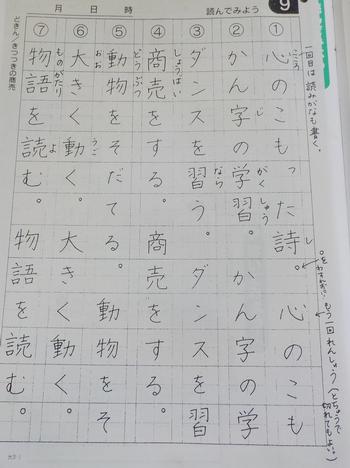 9
読んでみよう
月 日 時
どきん/きつつきの商売
一回目は読みがなも書く。
こころ
① 心のこもった詩。 心のこも
し
。をわすれない
もう一回れんしゅう(とちゅうで切れてもよい。)
② かん字の学習。 かん字の学
じ がくしゅう
③ ダンスを習う。 ダンスを習
なら
④ 商売をする。 商売をする。
しょうばい
⑤ 動物をそだてる。 動物をそ
どうぶつ
⑥ 大きく動く。 大きく動く。
おお うご
⑦ 物語を読む。 物語を読む。
ものがたり よ